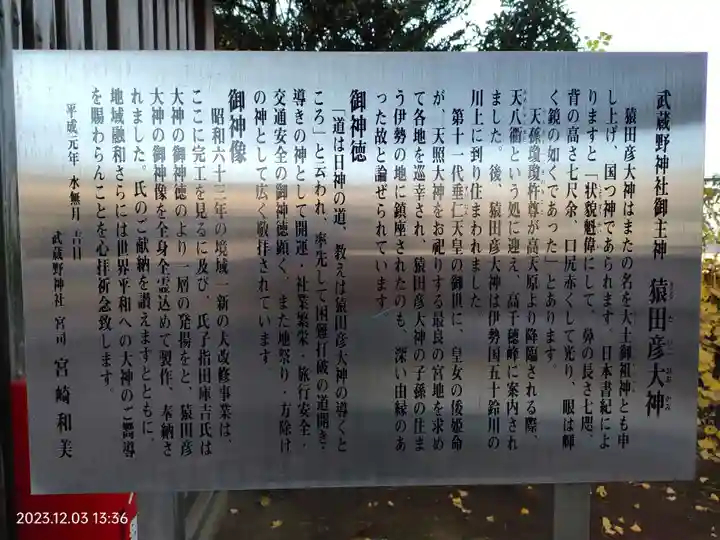 武蔵野神社御主神　猿田彦大神
猿田彦大神はまたの名を大土御祖神とも申
し上げ、国つ神であられます。日本書紀によ
りますと「状貌魁偉にして、鼻の長さ七咫、
背の高さ七尺余、口尻赤くして光り、眼は輝
く鏡の如くであった」とあります。
天孫瓊瓊杵尊が高天原より降臨される際、
天八衢という処に迎え、高千穂峰に案内され
ました。後、猿田彦大神は伊勢国五十鈴川の
川上に到り住まわれました。
第十一代垂仁天皇の御世に、皇女の倭姫命
が、天照大神をお祀りする最良の宮地を求め
て各地を巡幸され、猿田彦大神の子孫の住ま
う伊勢の地に鎮座されたのも、深い由縁のあ
った故と論ぜられています。
御神徳
「道は日神の道、教えは猿田彦大神の導くと
ころ」と云われ、率先して困難打破の道開き・
導きの神として開運・社業繁栄・旅行安全・
交通安全の御神徳顕く、また地祭り・方除け
の神として広く敬拝されています。
御神像
昭和六十三年の境域一新の大改修事業は、
ここに完工を見るに及び、氏子指田庫吉氏は
大神の御神徳のより一層の発揚をと、猿田彦
大神の御神像を全身全霊込めて製作、奉納さ
れました。氏のご献納を讃えますとともに、
地域融和さらには世界平和への大神のご嚮導
を賜わらんことを心拝祈念致します。
平成元年　水無月　吉日
武蔵野神社　宮司　宮崎和美
2023.12.03 13:36